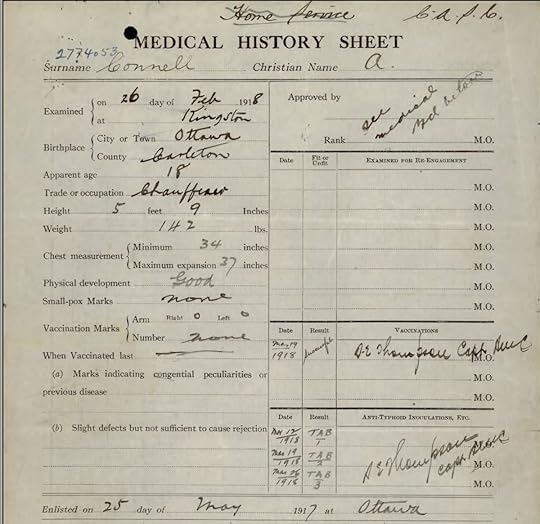 Home Service
C.A.S.C.
MEDICAL HISTORY SHEET
2774053
Surname Connell Christian Name A.
Examined { on 26 day of Feb 1918
at Kingston
Birthplace { City or Town Ottawa
County Carleton
Apparent age 18
Trade or occupation Chauffeur
Height 5 feet 9 Inches
Weight 142 lbs.
Chest measurement { Minimum 34 inches
Maximum expansion 37 inches
Physical development Good
Small-pox Marks none
Vaccination Marks { Arm Right 0 Left 0
Number none
When Vaccinated last
(a) Marks indicating congential peculiarities or
previous disease
(b) Slight defects but not sufficient to cause rejection
Approved by
see
medical
Rank M.O.
Date Fit or Unfit EXAMINED FOR RE-ENGAGEMENT
M.O.
M.O.
M.O.
M.O.
M.O.
M.O.
Date Result VACCINATIONS
Mar 19
1918 D.E Thompson Capt M.O.
M.O.
Date Result ANTI-TYPHOID INOCULATIONS, ETC.
Mar 12
1918 TAB 1 M.O.
Mar 19
1918 TAB 2 D E Thompson Capt M.O.
Mar 26
1918 TAB 3 M.O.
Enlisted on 25 day of May 1917 at Ottawa